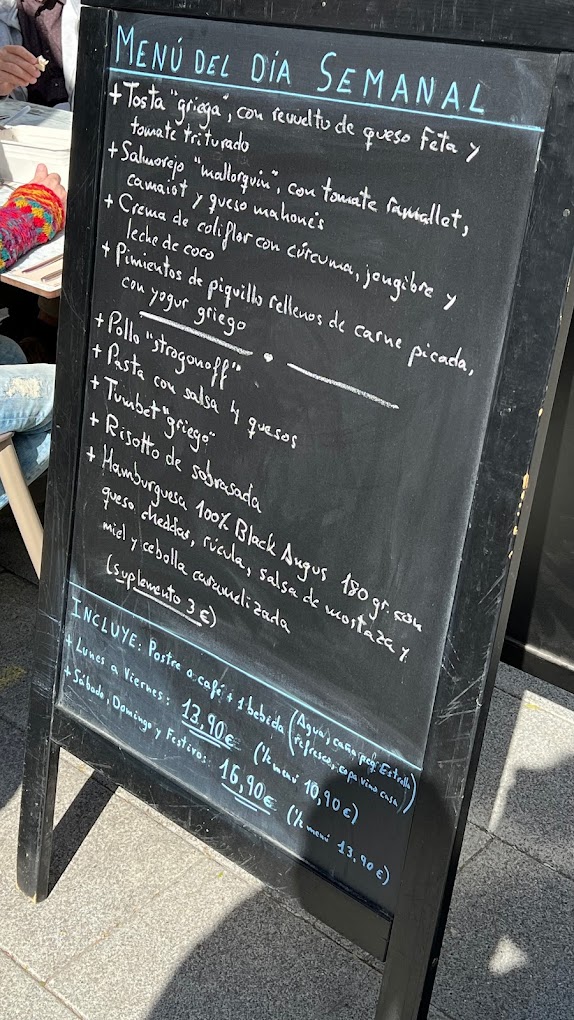 MENÚ DEL DÍA SEMANAL
+ Tosta "griega", con revuelto de queso Feta y
tomate triturado
+ Salmorejo "mallorquín", con tomate ramallet,
camaiot y queso mahonés
+ Crema de coliflor con cúrcuma, jengibre y
leche de coco
+ Pimientos de piquillo rellenos de carne picada,
con yogur griego
+ Pollo "strogonoff"
+ Pasta con salsa 4 quesos
+ Tumbet "griego"
+ Risotto de sobrasada
+ Hamburguesa 100% Black Angus 180 gr. con
queso cheddar, rúcula, salsa de mostaza y
miel y cebolla caramelizada
(suplemento 3 €)
INCLUYE: Postre o café + 1 bebida (Agua, caña peq. Estrella
refresco, copa vino casa)
+ Lunes a Viernes: 13,90€ (½ menú 10,90 €)
+ Sábado, Domingo y Festivos: 16,90€ (½ menú 13,90 €)